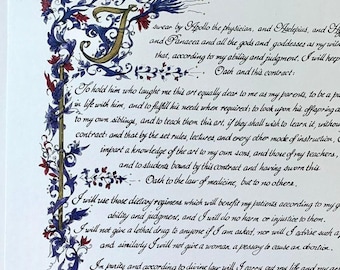 I swear by Apollo the physician, and Asclepius, and H
and Panacea and all the gods and goddesses as my witn
that, according to my ability and judgment, I will keep
Oath and this contract:
To hold him who taught me this art equally dear to me as my parents, to be a p
in life with him, and to fulfill his needs when required; to look upon his offspring a
to my own siblings, and to teach them this art, if they shall wish to learn it, witho
contract; and that by the set rules, lectures, and every other mode of instruction, I
impart a knowledge of the art to my own sons, and those of my teachers,
and to students bound by this contract and having sworn this
Oath to the law of medicine, but to no others.
I will use those dietary regimens which will benefit my patients according to my g
ability and judgment, and I will do no harm or injustice to them.
I will not give a lethal drug to anyone if I am asked, nor will I advise such a
and similarly I will not give a woman a pessary to cause an abortion.
In purity and according to divine law will I carry out my life and my a